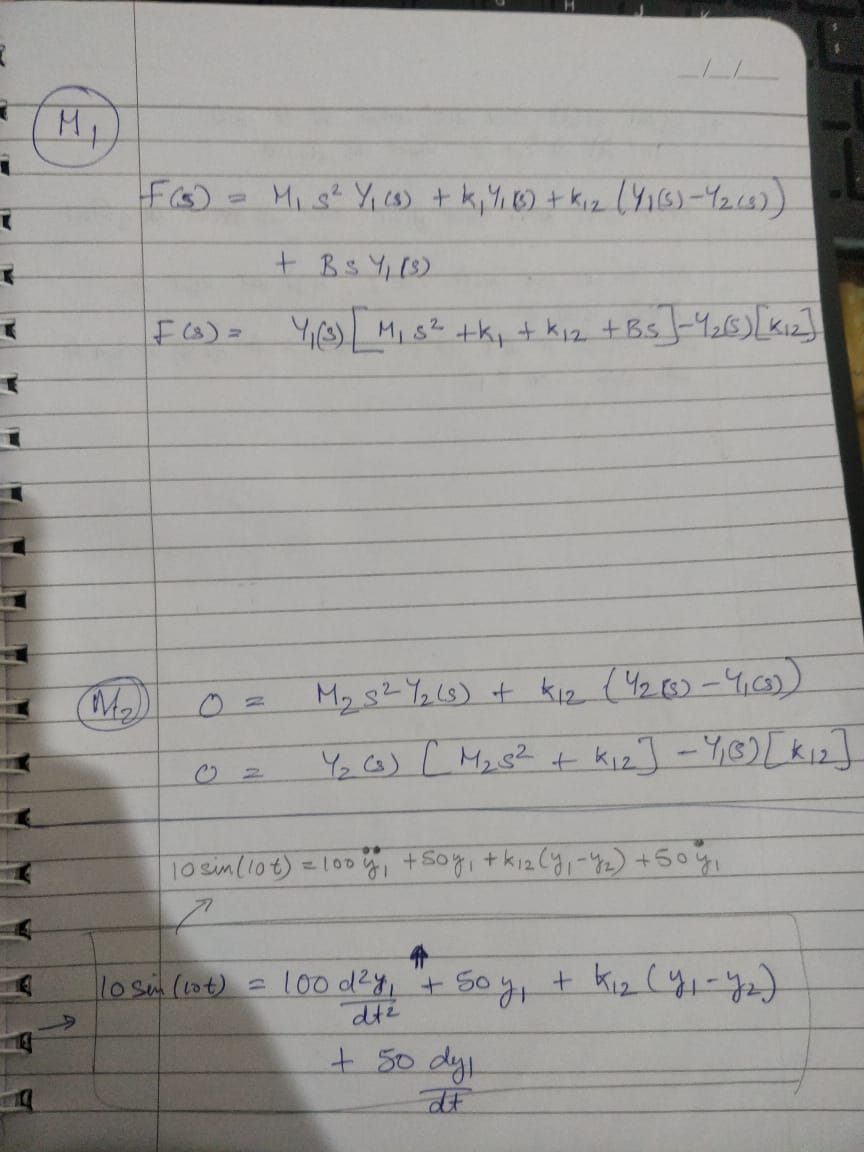 _/_/_
M₁
F(s) = M₁ s² Y₁(s) + k₁Y₁(s) + k₁₂ (Y₁(s) - Y₂(s))
+ B s Y₁(s)
F(s) = Y₁(s) [M₁ s² + k₁ + k₁₂ + Bs] - Y₂(s) [k₁₂]
M₂ 0 = M₂ s² Y₂(s) + k₁₂ (Y₂(s) - Y₁(s))
0 = Y₂(s) [M₂s² + k₁₂] - Y₁(s) [k₁₂]
10 sin(10t) = 100 ÿ₁ + 50y₁ + k₁₂(y₁-y₂) + 50 ẏ₁
10 sin(10t) = 100 d²y₁/dt² + 50 y₁ + k₁₂ (y₁-y₂)
+ 50 dy₁/dt